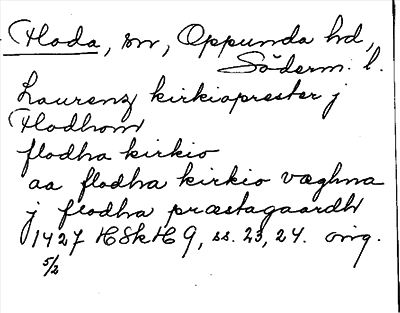 Floda, sn, Oppunda hd,
Söderm. l.
Laurenz kirkioprester j
Flodhom
flodhra kirkio
aa flodhra kirkio væghna
j flodhra præstagaardh
1427 HSkH 9, ss. 23, 24. orig.
5/2